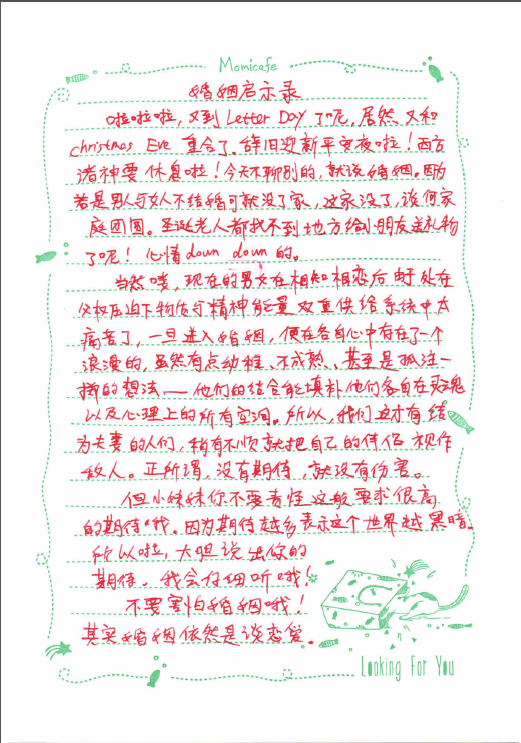 Momicafe
婚姻启示录
啦啦啦，又到Letter Day了呢，居然又和
Christmas Eve 重合了。辞旧迎新平安夜啦！西方
诸神要休息啦！今天不聊别的，就说婚姻。因为
若是男人与女人不结婚可就没了家，这家没了，谈何家
庭团圆。圣诞老人都找不到地方给小朋友送礼物
了呢！心情down down的。
当然喽，现在的男女在相知相恋后由于处在
父权压迫下物质与精神能量双重供给系统中太
痛苦了，一旦进入婚姻，便在各自心中有存在了一个
浪漫的，虽然有点幼稚、不成熟、甚至是孤注一
掷的想法——他们的结合能填补他们各自在灵魂
以及心理上的所有空洞。所以，我们这才有结
为夫妻的人们，稍有不顺就把自己的伴侣视作
敌人。正所谓，没有期待，就没有伤害。
但小妹妹你不要责怪这般要求很高
的期待哦。因为期待越多表示这个世界越黑暗。
所以啦，大胆说出你的
期待、我会仔细听哦！
不要害怕婚姻哦！
其实婚姻依然是谈恋爱。
Looking For You